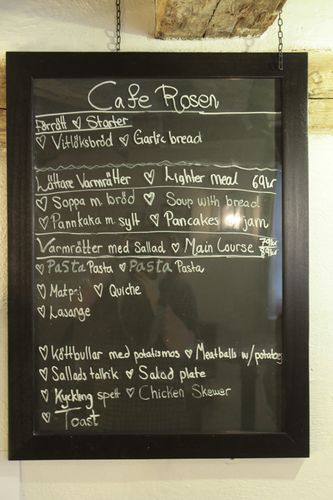 Cafe Rosen
Förrätt ♡ Starter
♡ Vitlöksbröd ♡ Garlic bread
Lättare Varmrätter ♡ Lighter meal 69kr
♡ Soppa m. bröd ♡ Soup with bread
♡ Pannkaka m. sylt ♡ Pancakes jam
Varmrätter med Sallad ♡ Main Course 79kr
89kr
♡ Pasta Pasta ♡ Pasta Pasta
♡ Matpaj ♡ Quiche
♡ Lasange
♡ Köttbullar med potatismos ♡ Meatballs w/potatoes
♡ Sallads tallrik ♡ Salad plate
♡ Kyckling spett ♡ Chicken Skewer
♡ Toast